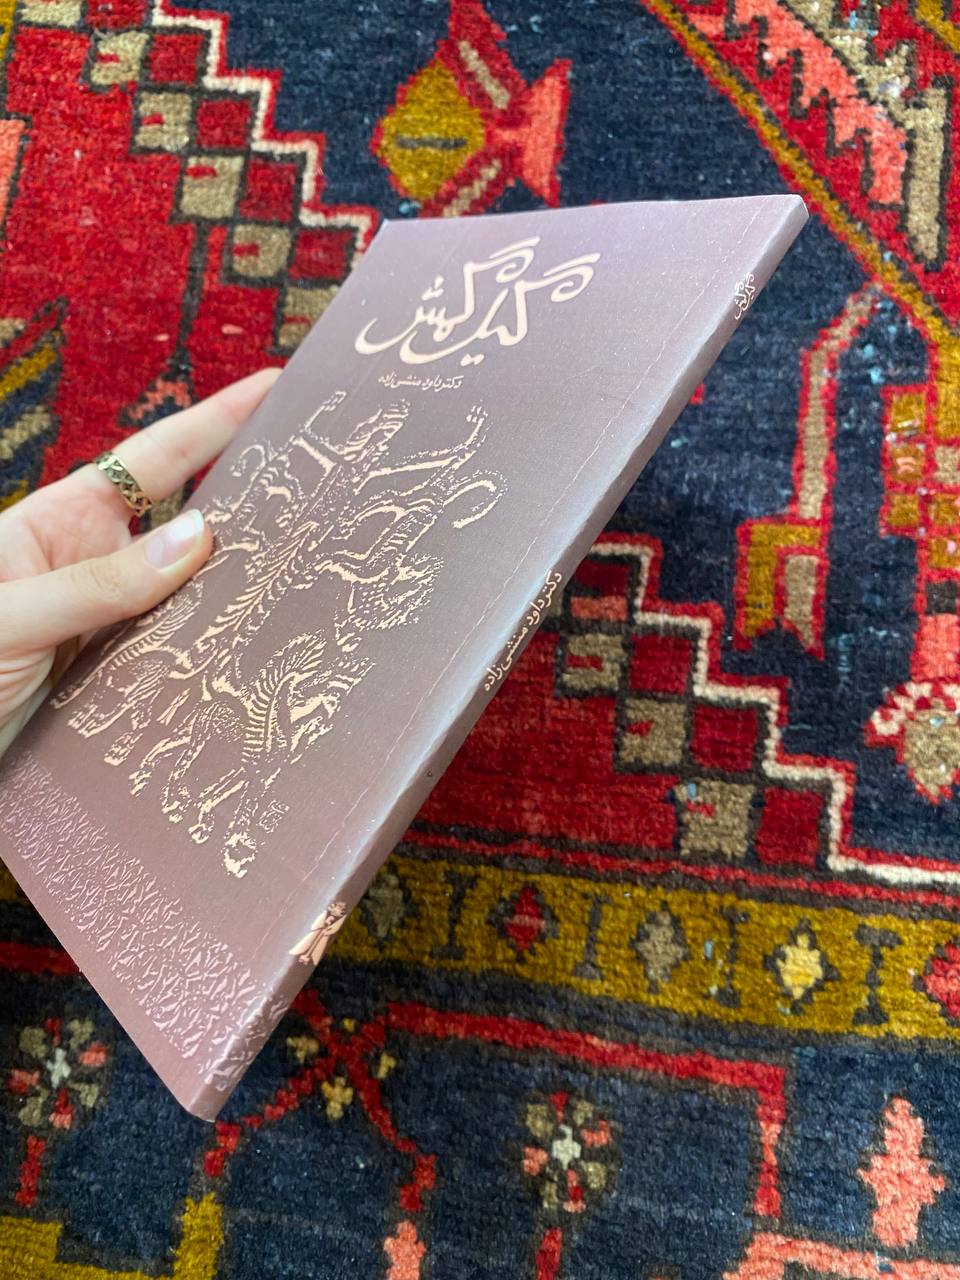 گیل گمش
دکتر داود منشی‌زاده
گیل گمش
دکتر داود منشی‌زاده